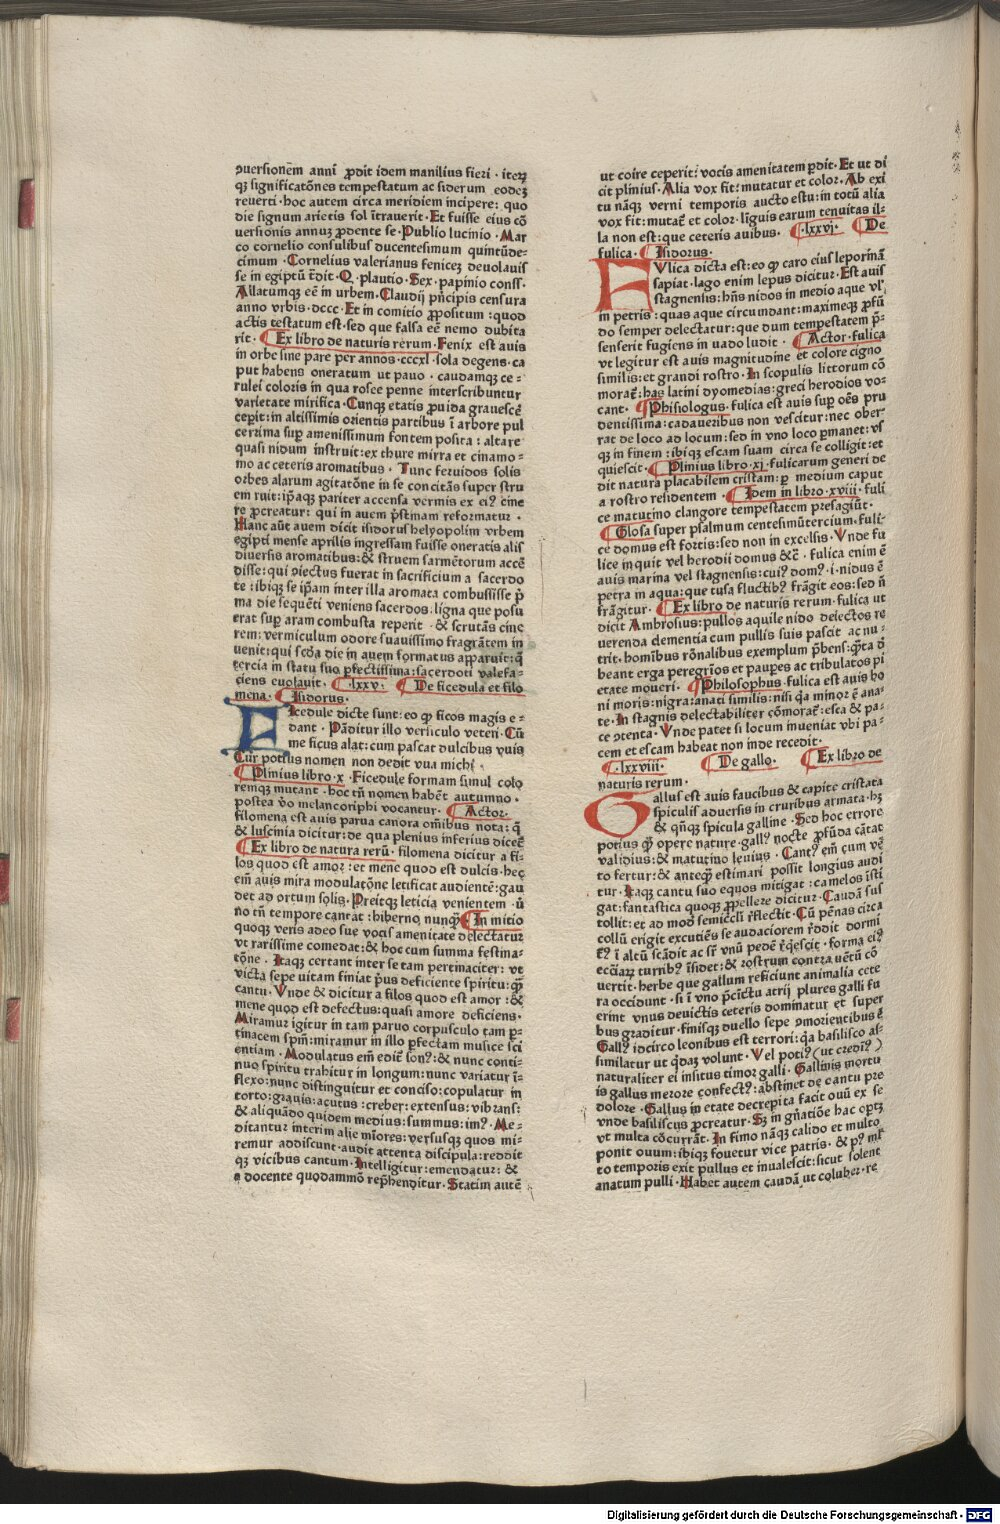 ꝯuersionem anni ꝓdit idem manilius fieri · iteꝝ
qꝫ significatões tempestatum ac siderum eodeꝫ
reuerti · hoc autem circa meridiem incipere: quo
die signum arietis sol ĩtrauerit · Et fuisse eius cõ
uersionis annuꝫ ꝓdente se · Publio lucinio · Mar
co cornelio consulibus ducentesimum quintũde⸗
cimum · Cornelius valerianus feniceꝫ deuolauis
se in egiptũ t̃dit · Q · plautio · Sex · papinio conss ·
Allatumqꝫ eẽ in urbem · Claudij pñcipis censura
anno vrbis · dccc · Et in comitio ꝓpositum : quod
actis testatum est · sed que falsa eẽ nemo dubita
rit · Ex libro de naturis rerum · Fenix est auis
in orbe sine pare per annos · cccxl · sola degens · ca
put habens oneratum ut pauo · caudamqꝫ ce⸗
rulei coloris in qua rosee penne interscribuntur
varietate mirifica · Cunqꝫ etatis ꝓuida grauescẽ
ceperit: in altissimis orientis partibus ĩ arbore pul
cerrima suꝑ amenissimum fontem posita : altare
quasi nidum instruit: ex thure mirra et cinamo⸗
mo ac ceteris aromatibus · Tunc feruidos solis
orbes alarum agitatõne in se concitãs super stru
em ruit: iꝑ̃aqꝫ pariter accensa vermis ex eiꝰ cine
re ꝓcreatur: qui in auem p̃stinam reformatur ·
Hanc aũt auem dicit isidorus helyopolim vrbem
egipti mense aprilis ingressam fuisse oneratis alis
diuersis aromatibus: & struem sarmẽtorum accẽ
disse: qui ꝯiectus fuerat in sacrificium a sacerdo
te : ibiqꝫ se ip̃am inter illa aromata combussisse p̃
ma die sequẽti veniens sacerdos · ligna que posu
erat suꝑ aram combusta reperit · & scrutãs cine
rem: vermiculum odore suauissimo fragrãtem in
uenit: qui scđa die in auem formatus apparuit: q̃
tercia in statu suo ꝑfectissima: sacerdoti valefa⸗
ciens euolauit · lxxv · De ficedula et filo
mena · Isidorus ·
Ficedule dicte sunt: eo ꝙ ficos magis e⸗
dant · Pãditur illo versiculo veteri · Cũ
me ficus alat: cum pascat dulcibus vuis
Cur potius nomen non dedit vua michi ·
Plinius libro · x · Ficedule formam simul colo
remqꝫ mutant · hoc tñ nomen habẽt autumno ·
postea ṽo melancoriphi vocantur · Actor ·
filomena est auis parua canora om̃ibus nota: q̃
& luscinia dicitur: de qua plenius inferius diceẽ
Ex libro de natura rerũ · filomena dicitur a fi⸗
los quod est amoꝛ: et mene quod est dulcis · hec
em̃ auis mira modulatõne letificat audientẽ: gau
det ad ortum solis · Preitqꝫ leticia venientem · ũ
no tñ tempore cantat : hiberno nunꝙ̃ · In initio
quoqꝫ veris adeo sue vocis amenitate delectatur
vt rarissime comedat: & hoc cum summa festina⸗
tõne · Itaqꝫ certant inter se tam pertinaciter: vt
victa sepe uitam finiat p̃us deficiente spiritu: ꝙ̃
cantu · Vnde & dicitur a filos quod est amor : &
mene quod est defectus: quasi amore deficiens ·
Miramur igitur in tam paruo corpusculo tam ꝑ⸗
tinacem spm̃: miramur in illo ꝑfectam musice sci
entiam · Modulatus em̃ edit̃ sonꝰ: & nunc conti⸗
nuo spiritu trahitur in longum: nunc variatur ĩ⸗
flexo: nunc distinguitur et conciso: copulatur in
torto: grauis: acutus : creber: extensus: vibrans:
& aliquãdo quidem medius: summus: imꝰ · Me⸗
ditantur interim alie mĩores: versusqꝫ quos mi⸗
remur addiscunt · audit attenta discipula: reddit
qꝫ vicibus cantum · Intelligitur: emendatur: &
a docente quodammõ rep̃henditur · Statim autẽ
ut coire ceperit: vocis amenitatem ꝑdit · Et ut di
cit plinius · Alia vox fit: mutatur et color · Ab exi
tu nãqꝫ verni temporis aucto estu: in totũ alia
vox fit: mutat̃ et color · lĩguis earum tenuitas il⸗
la non est: que ceteris auibus · lxxvj · De
fulica · Isidorus ·
FVlica dicta est: eo ꝙ caro eius leporinã
sapiat · lago enim lepus dicitur · Est auis
stagnensis: hñs nidos in medio aque vl̕
in petris : quas aque circumdant: maximeqꝫ ꝓfũ
do semper delectatur: que dum tempestatem p̃⸗
senserit fugiens in uado ludit · Actor · fulica
vt legitur est auis magnitudine et colore cigno
similis: et grandi rostro · In scopulis littorum cõ
morat̃: has latini dyomedias: greci herodios vo⸗
cant · Phisiologus · fulica est auis suꝑ oẽs pru
dentissima: cadaueribus non vescitur: nec ober
rat de loco ad locum: sed in vno loco ꝑmanet: vs
qꝫ in finem : ibiqꝫ escam suam circa se colligit: et
quiescit · Plinius libro · xj · fulicarum generi de
dit natura placabilem cristam: ꝑ medium caput
a rostro residentem · Idem in libro · xviii · fuli
ce matutino clangore tempestatem presagiũt ·
Glosa super psalmum centesimũtercium · fuli⸗
ce domus est fortis: sed non in excelsis · Vnde fu
lice inquit vel herodii domus &c̃ · fulica enim ẽ
auis marina vel stagnensis: cuiꝰ domꝰ · i · nidus ẽ
petra in aqua: que tusa fluctibꝰ frãgit eos: sed ñ
frãgitur · Ex libro de naturis rerum · fulica ut
dicit Ambrosius: pullos aquile nido deiectos re
uerenda clementia cum pullis suis pascit ac nu⸗
trit · homĩbus rõnalibus exemplum p̃bens: q̃ta d̃
beant erga peregrĩos et pauꝑes ac tribulatos pi
etate moueri · Philosophus · fulica est auis ho
ni moris: nigra: anati similis: nisi q̃a minor ẽ ana⸗
te · In stagnis delectabiliter cõmorat̃: esca & pa⸗
ce ꝯtenta · Vnde patet si locum inueniat vbi pa⸗
cem et escam habeat non inde recedit ·
lxxviii · De gallo · Ex libro de
naturis rerum ·
Gallus est auis faucibus & capite cristata
spiculis aduersis in cruribus armata · hꝫ
& qñqꝫ spicula galline · Sed hoc errore
potius ꝙ̃ opere nature · gallꝰ nocte ꝓfũda cãtat
validius: & matutino leuius · Cantꝰ em̃ cum vẽ
to fertur: & anteꝙ̃ estimari possit longius audi
tur · Itaqꝫ cantu suo equos mitigat : camelos ĩsti
gat: fantastica quoqꝫ ꝓpellere dicitur · Caudã sus
tollit: et ad modũ semicĩcli r̃flectit · Cũ pẽnas circa
collũ erigit excutiẽs se audaciorem r̃ddit dormi
t̃ꝰ ĩ altũ scãdit ac sr̃ vnũ pedẽ r̃q̃escit · forma eiꝰ
ecc̃iaꝝ turribꝰ ĩsidet: & rostrum contra uẽtũ cõ
uertit · herbe que gallum reficiunt animalia cete
ra occidunt · si ĩ vno p̃cĩctu atrij plures galli fu
erint vnus deuictis ceteris dominatur et super
bus graditur · finisqꝫ duello sepe ꝯmorientibus ẽ
Gallꝰ idcirco leonibus est terrori: q̃a basilisco as⸗
similatur ut q̃daꝫ volunt · Vel potiꝰ (ut crediꝰ)
naturaliter ei insitus timor galli · Gallinis mortu
is gallus merore confectꝰ: abstinet de cantu pre
dolore · Gallus in etate decrepita facit ouũ ex se
vnde basiliscus ꝓcreatur · Sꝫ in gñatiõe hac oꝑtꝫ
vt multa cõcurrãt · In fimo nãqꝫ calido et multo
ponit ouum: ibiqꝫ fouetur vice patris · & pꝰ ml̕
to temporis exit pullus et inualescit: sicut solent
anatum pulli · Habet autem caudã ut coluber · re
Digitalisierung gefördert durch die Deutsche Forschungsgemeinschaft - DFG